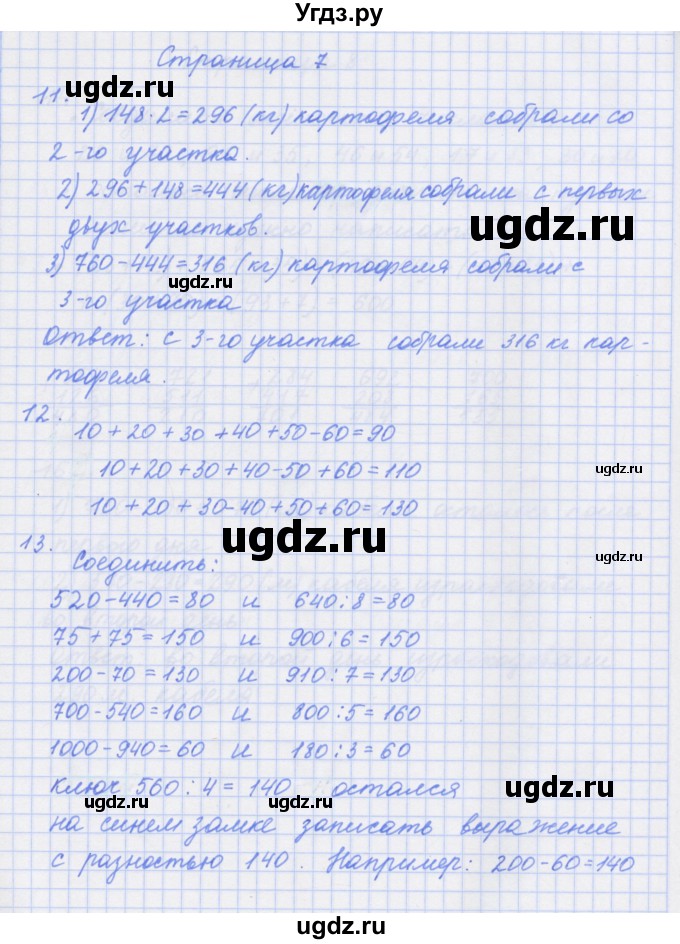 Угдз.ру
Страница 7
ugdz.ru
11.
1) 148·2=296 (кг) картофеля собрали со
2-го участка.
ugdz.ru
2) 296+148=444 (кг) картофеля собрали с первых
двух участков.
ugdz.ru
3) 760-444=316 (кг) картофеля собрали с
ugdz.ru
3-го участка
Ответ: с 3-го участка собрали 316 кг кар-
тофеля.
ugdz.ru
12.
10+20+30+40+50-60=90
10+20+30+40-50+60=110
ugdz.ru
10+20+30-40+50+60=130
ugdz.ru
13.
Соединить:
ugdz.ru
520-440=80 и 640:8=80
75+75=150 и 900:6=150
200-70=130 и 910:7=130
700-540=160 и 800:5=160
1000-940=60 и 180:3=60
ugdz.ru
Ключ 560:4=140 остался
ugdz.ru ugdz.ru
на синем замке записать выражение
с разностью 140. Например: 200-60=140
ugdz.ru